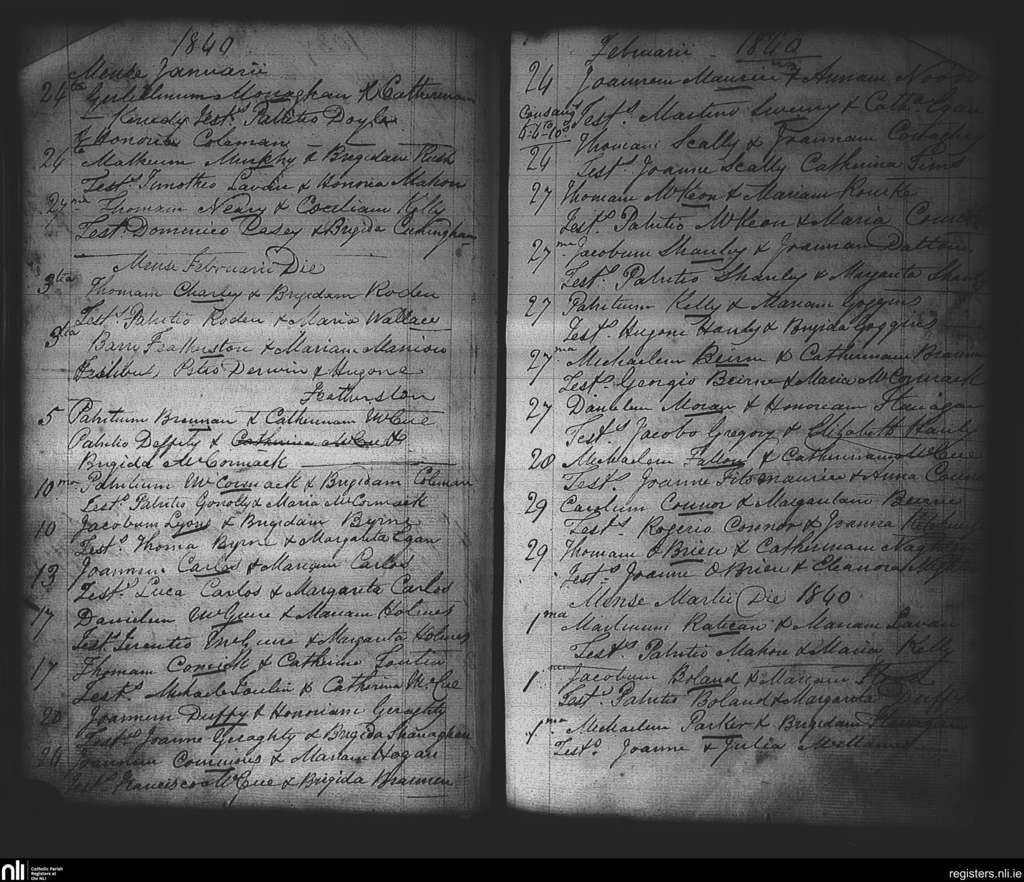 1840
Mense Januarii
24ta Gulielmum Monaghan & Catherinam
Kenedy Test. Patritio Doyle
& Honoria Coleman
24 Matheum Murphy & Brigidam Rush
Test. Timotheo Lavan & Honoria Mahon
Thomam Neary & Coeciliam Kelly
Test. Dominico Casey & Brigida Cunningham
Mense Februarii Die
3tia Thomam Charley & Brigidam Roden
Tests. Patritio Roden & Maria Wallace
3tia Barry Featherston & Mariam Manion
Derwin & Hugone
Fetherston
5 Patritium Brennan & Catherinam McCue
Patritio Deffily & Catherina McCue &
Brigida McCormack
10mo Patritium McCormack & Brigidam Coleman
Test. Patritio Gonolly & Maria McCormack
10 Jacobum Lyons & Brigidam Byrne
Tests. Thoma Byrne & Margarita Egan
13 Joannem Carlos & Mariam Carlos
Tests. Luca Carlos & Margareta Carlos
17 Danielem McGuire & Mariam Holmes
Test. Terentio McGuire & Margarita Holmes
17 Thomam Cormick & Catherina
Tests. Michaele & Catherina McCue
20 Joannem Duffy & Honoriam Geraghty
Tests. Joanne Geraghty & Brigida Shanaghan
24 Joannem Commons & Mariam Hogan
Tests. Francisco McCue & Brigida Brannen
Februarii 1840
24 Joannem Maurice & Annam
Consang Tests. Martino Sweeny & Catha Egan
Thomam Scally & Joannam
24 Test. Joanne Scally Catherina Sims
27 Thomam McKeon & Mariam Rourke
Tests. Patritio McKeon & Maria
27ma Jacobum Shanley & Joannam Dalton
Tests. Patritio Shanley & Margarita Shanley
27 Patritium Kelly & Mariam Goggins
Tests. Hugone Hanly & Brigida Goggins
27ma Michaelem Beirne & Catherinam
Tests. Georgio Beirne & Maria McCormack
27 Danielem Moran & Honoriam Flanagan
Tests. Jacobo Gregory & Elizabeth Hanly
28 Michaelem Fallon & Catherinam McCue
Tests. Joanne Fitsmaurice & Anna
29 Carolum Connor & Margaritam Beirne
Tests. Rogerio Connor & Joanna
29 Thomam O'Brien & Catherinam
Tests. Joanne O'Brien & Eleanora
Mense Martii Die 1840
1ma Martinum Ratican & Mariam Lavan
Tests. Patritio Mahon & Maria Kelly
1ma Jacobum Boland & Mariam
Tests. Patritio Boland & Margarita
1ma Michaelem Parker & Brigidam Flanagan
Tests. Joanne & Julia
nli
Catholic Parish
Registers at
the NLI
registers.nli.ie